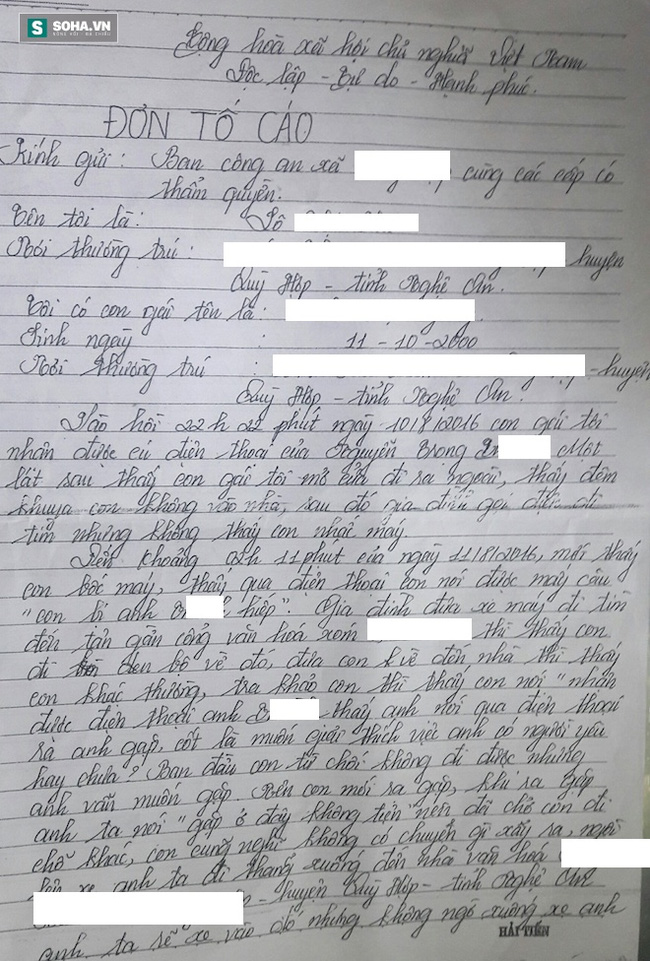 SOHA.VN
Cộng hoà xã hội chủ nghĩa Việt Nam
Độc lập - Tự do - Hạnh phúc.
ĐƠN TỐ CÁO
Kính gửi : Ban công an xã cùng các cấp có
thẩm quyền.
Tên tôi là : Lô
Nơi thường trú : huyện
Quỳ Hợp - tỉnh Nghệ An.
Tôi có con gái tên là :
Sinh ngày : 11 - 10 - 2000
Nơi thường trú : - huyện
Quỳ Hợp - tỉnh Nghệ An.
Vào hồi 22 h 22 phút ngày 10/8/2016 con gái tôi
nhận được cú điện thoại của Nguyễn Trọng Một
lát sau thấy con gái tôi mở cửa đi ra ngoài, thấy đêm
khuya con không vào nhà, sau đó gia đình gọi điện đi
tìm nhưng không thấy con nhấc máy.
Đến khoảng 02h 11 phút của ngày 11/8/2016, mới thấy
con bốc máy, thấy qua điện thoại con nói được mấy câu
"con bị anh hiếp". Gia đình đưa xe máy đi tìm
đến tận gần cổng văn hoá xóm thì thấy con
đi đến bộ về đó, đưa con về đến nhà thì thấy
con khác thường, tra khảo con thì thấy con nói "nhận
được điện thoại anh thấy anh nói qua điện thoại
ra anh gặp, cốt là muốn giải thích việc anh có người yêu
hay chưa? Ban đầu con từ chối không đi được nhưng
anh vẫn muốn gặp. Nên con mới ra gặp, khi ra gặp
anh ta nói "gặp ở đây không tiện" nên đã chở con đi
chỗ khác, con cũng nghĩ không có chuyện gì xảy ra, ngồi
xe anh ta đi thẳng xuống đến nhà văn hoá
- huyện Quỳ Hợp - tỉnh Nghệ An
anh ta rẽ xe vào đó nhưng không ngó xuống xe anh
HẢI TIẾN